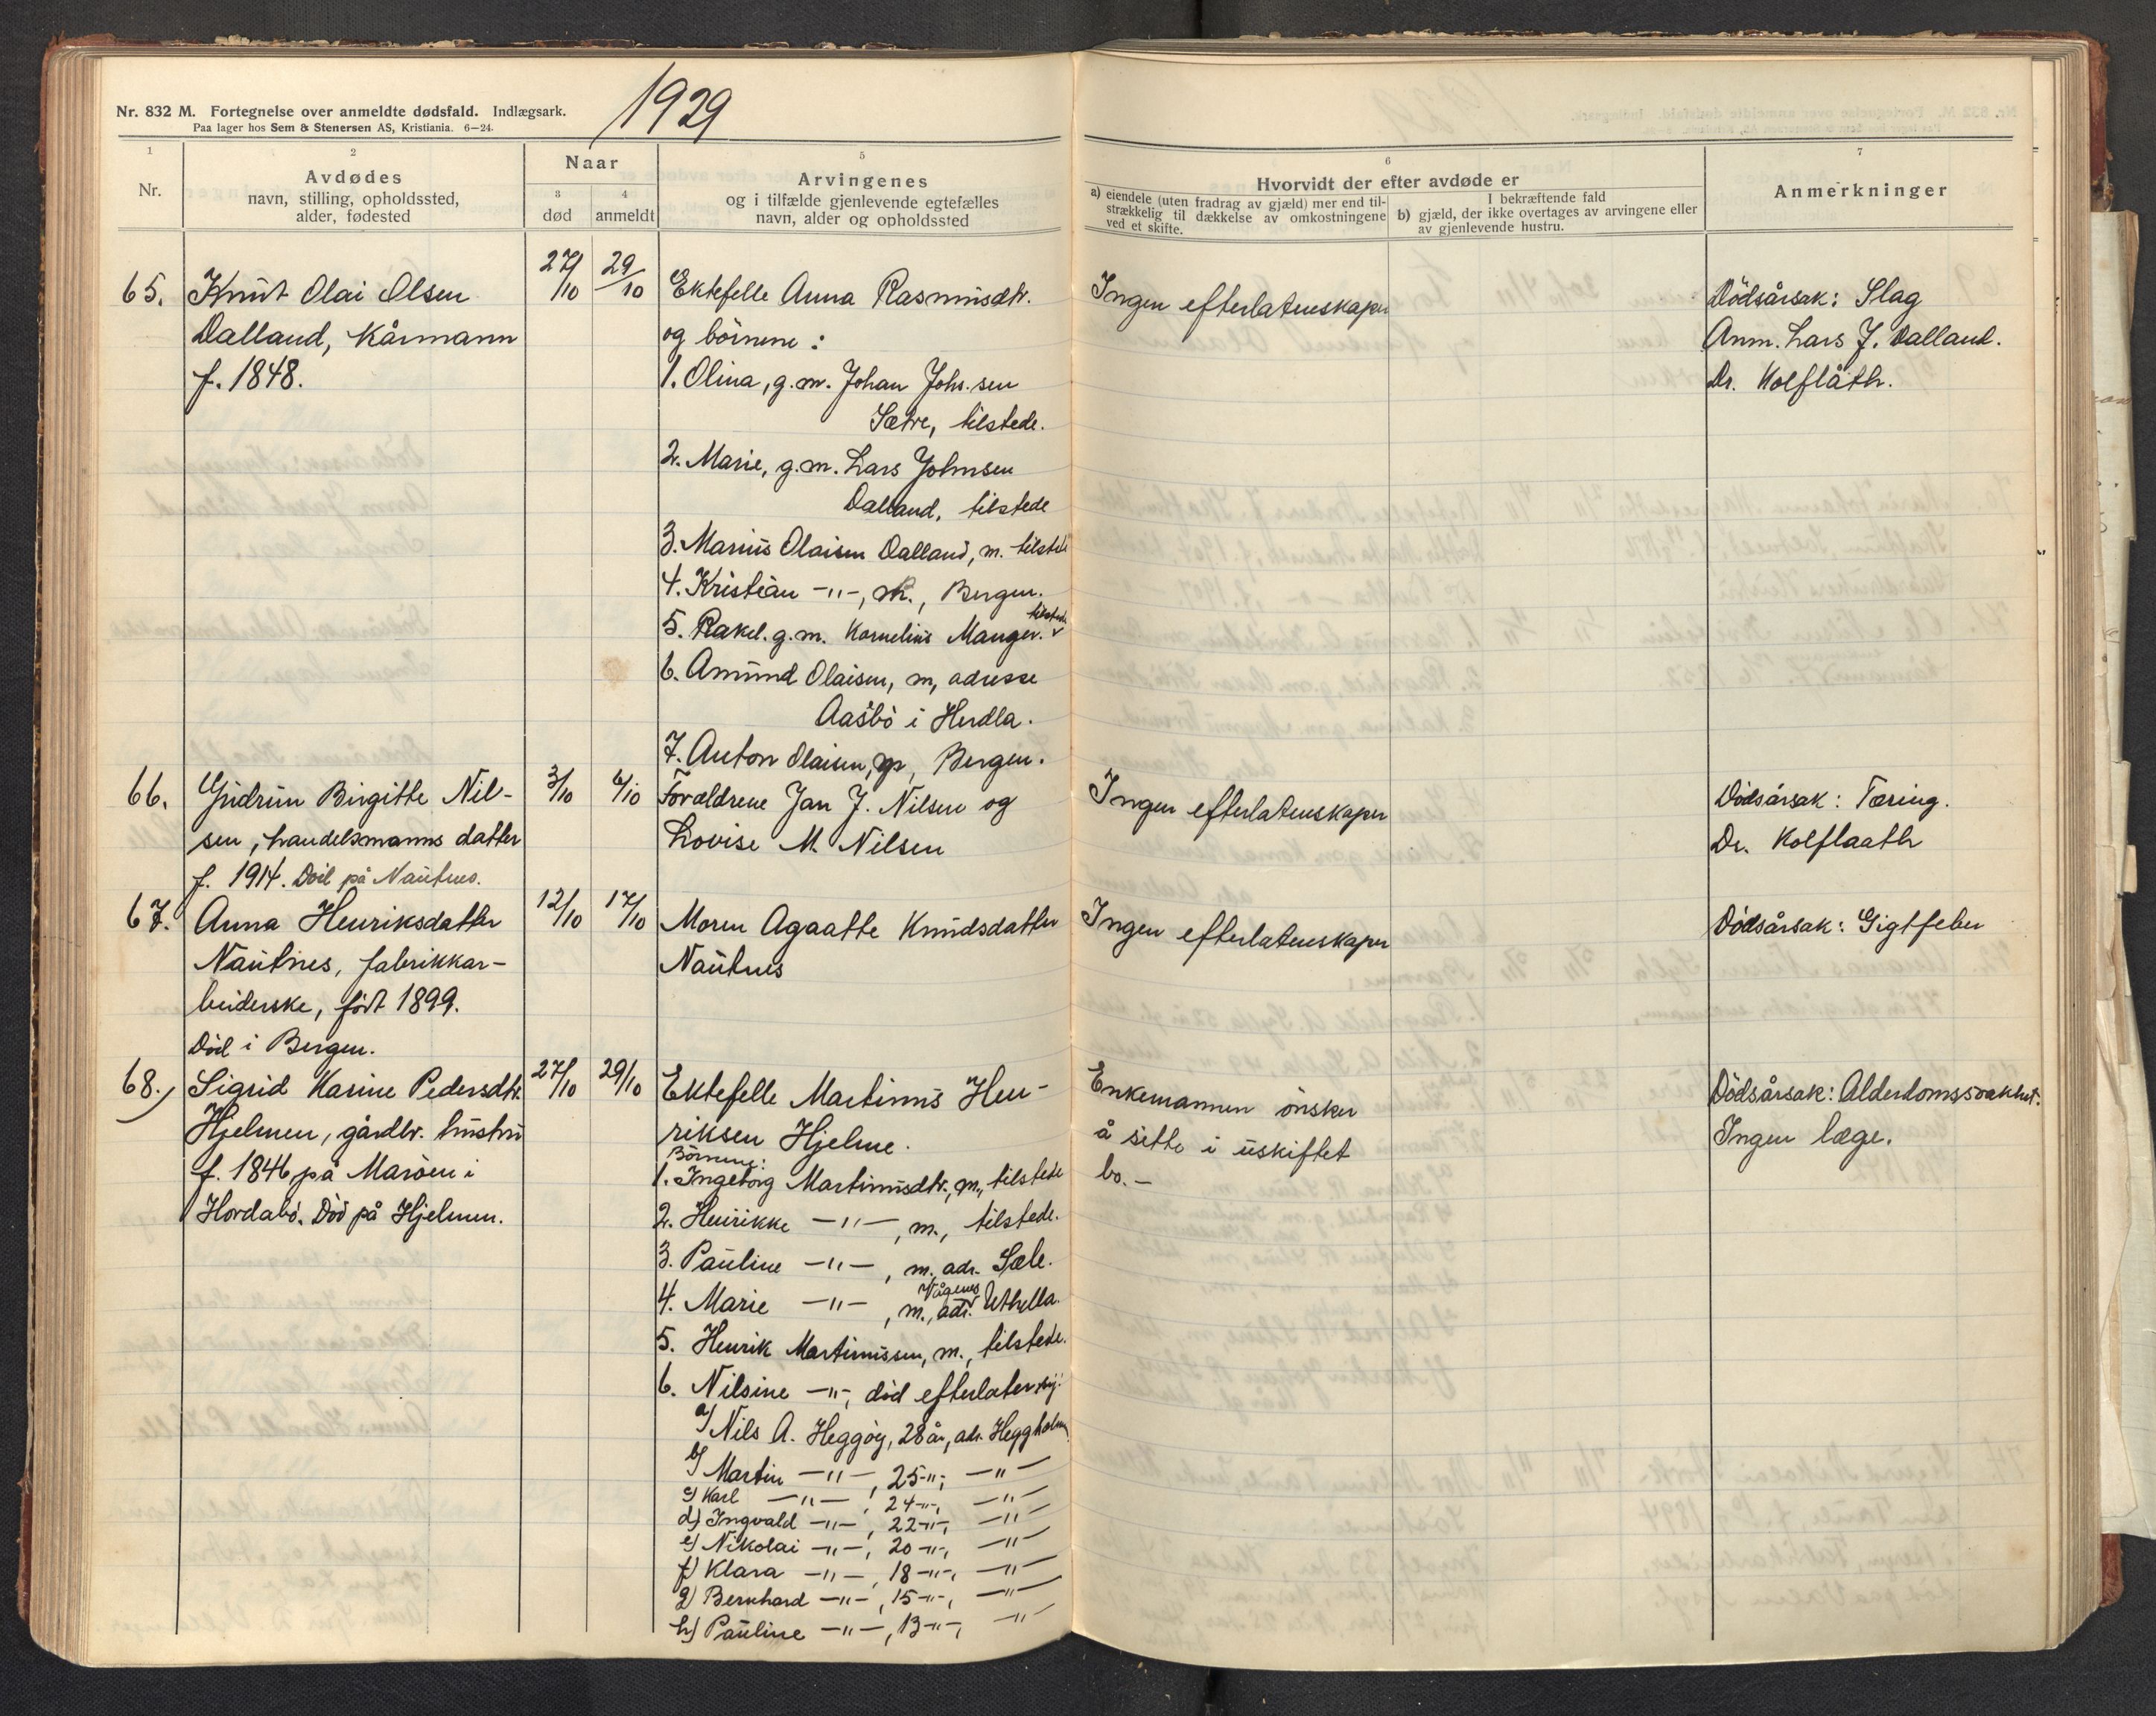 Nr. 832 M. Fortegnelse over anmeldte dødsfald. Indlægsark.
Paa lager hos Sem & Stenersen AS, Kristiania. 6—24.
1929
1
Nr.
2
Avdødes
navn, stilling, opholdssted,
alder, fødested
Naar
3
død
4
anmeldt
5
Arvingenes
og i tilfælde gjenlevende egtefælles
navn, alder og opholdssted
6
Hvorvidt der efter avdøde er
a) eiendele (uten fradrag av gjæld) mer end til-
strækkelig til dækkelse av omkostningene
ved et skifte.
I bekræftende fald
b) gjæld, der ikke overtages av arvingene eller
av gjenlevende hustru.
7
Anmerkninger
65.
Knut Olai Olsen
Dalland, kårmann
f. 1848.
27/10
29/10
Ektefelle Anna Rasmusdtr.
og börnene:
1. Olina, g.m. Johan Johs.sen
Sætre, tilstede.
2. Marie, g.m. Lars Johnsen
Dalland, tilstede
3. Marius Olaisen Dalland, m. tilstede
4. Kristian —"—, m., Bergen.
5. Rakel. g.m. Kornelius Manger. tilstede
6. Amund Olaisen, m, adresse
Aasbö i Herdla.
7. Anton Olaisen, m, Bergen.
Ingen efterlatenskaper
Dödsårsak: Slag
Anm. Lars J. Dalland.
Dr. Kolflåth.
66.
Gudrun Birgitte Nil-
sen, handelsmanns datter
f. 1914. Död på Nautnes.
3/10
6/10
Forældrene Jan J. Nilsen og
Lovise M. Nilsen
Ingen efterlatenskaper
Dödsårsak: Tæring.
Dr. Kolflaath
67.
Anna Henriksdatter
Nautnes, fabrikkar-
beiderske, födt 1899.
Död i Bergen.
12/10
17/10
Moren Agaatte Knudsdatter
Nautnes
Ingen efterlatenskaper
Dödsårsak: Gigtfeber
68.
Sigrid Karine Pedersdtr.
Hjelmen, gårdbr. hustru
f. 1846 på Maröen i
Hordabö. Död på Hjelmen.
27/10
29/10
Ektefelle Martinus Hen-
riksen Hjelme.
Börnene:
1. Ingeborg Martinusdtr., m., tilstede
2. Henrikke —"—, m., tilstede.
3. Pauline —"—, m. adr. Sæle.
4. Marie —"—, m., adr. Vågenes Uthella.
5. Henrik Martinussen, m., tilstede.
6. Nilsine —"—, död efterlater sig:
a) Nils A. Heggöy, 28 år, adr. Heggholm
b) Martin —"—, 25 —"—, —"—
c) Karl —"—, 24 —"—, —"—
d) Ingvald —"—, 22 —"—, —"—
e) Nikolai —"—, 20 —"—, —"—
f) Klara —"—, 18 —"—, —"—
g) Bernhard —"—, 15 —"—, —"—
h) Pauline —"—, 13 —"—, —"—
Enkemannen önsker
å sitte i uskiftet
bo. —
Dödsårsak: Alderdomssvakhet.
Ingen læge.